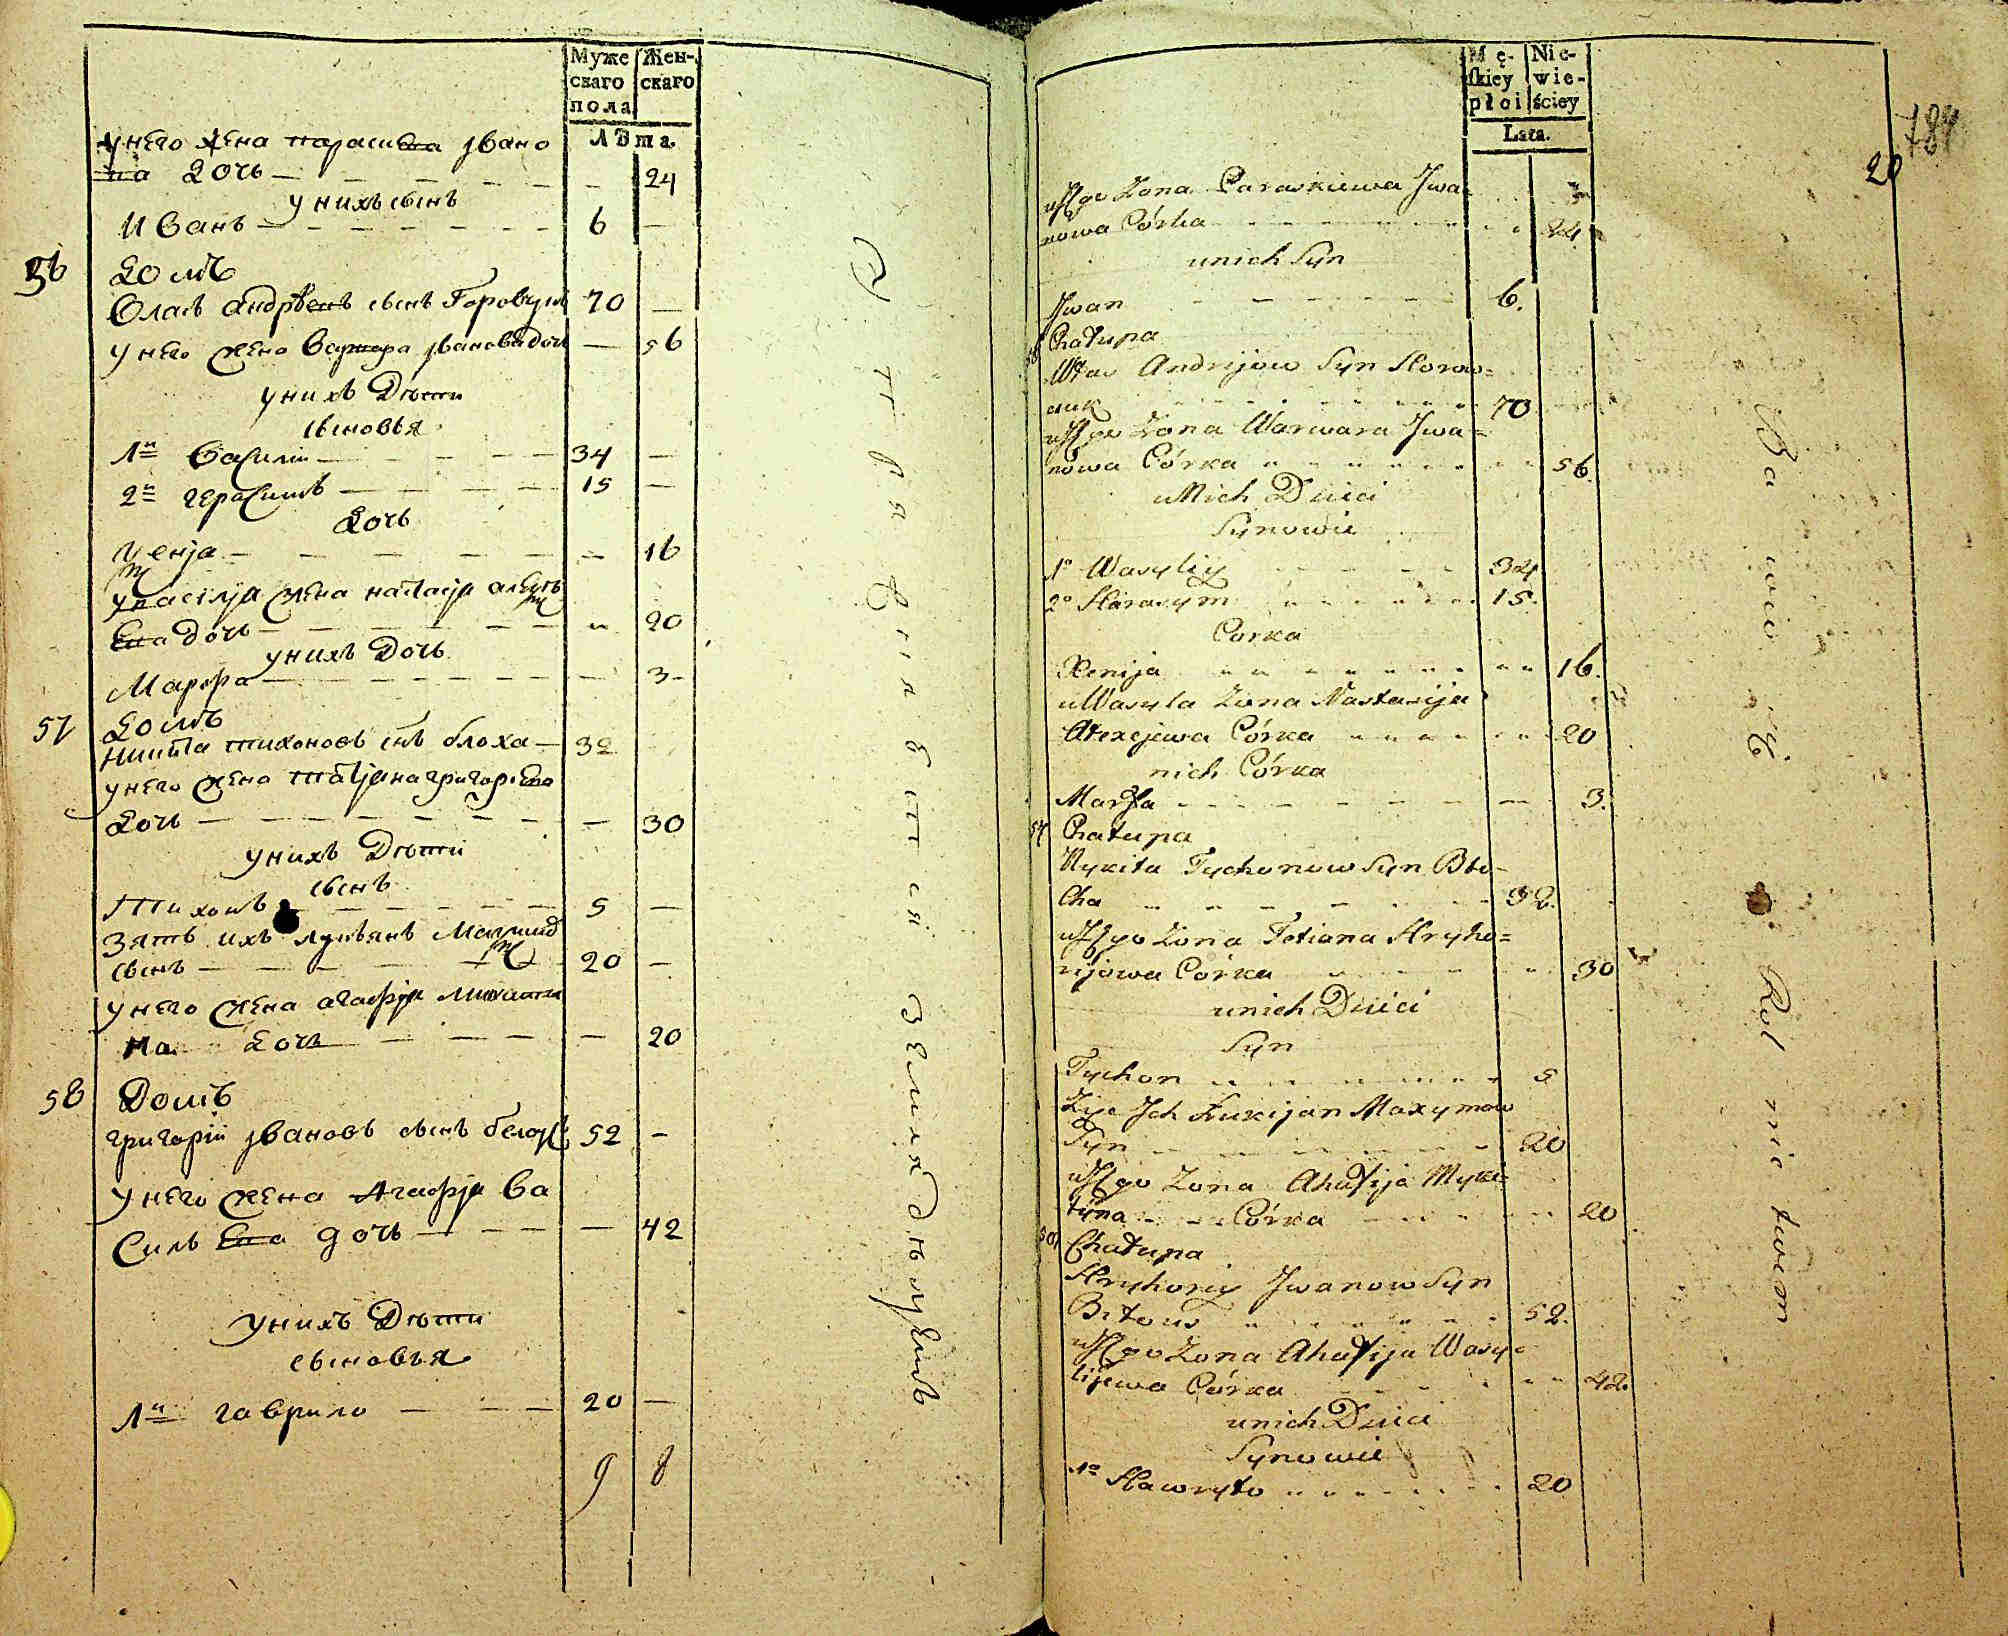 Муже
скаго
пола
Жен-
скаго
Лѣта.
у него жена параскева јвано
ва дочь — 24
у нихъ сынъ
Иванъ — 6 —
56 Домъ
Власъ андрѣевъ сынъ Горовук 70 —
у него жена варвара јванова дочь — 56
у нихъ Дѣти
сыновья
1й василий — 34 —
2й герасимъ — 15 —
Дочь
Ксенја — 16
у василја жена настасја алексѣ
ева дочь — 20
у нихъ Дочь
Марфа — 3
57 Домъ
Никита тихоновъ снъ блоха — 32
у него жена татјана григорјева
Дочь — 30
у нихъ Дѣти
сынъ
Тихонъ — 5 —
Зять ихъ лукьянъ Максимов
сынъ — 20 —
у него жена агафја Микити
на Дочь — 20
58 Домъ
григорій јвановъ сынъ белоус 52 —
у него жена Агафја ва
силь ева дочь — 42
у нихъ Дѣти
сыновья
1й гаврило — 20 —
9 8
земля
Mę-
skiey
płci
Nie-
wie-
ściey
Lata.
784
20
u Jego Żona Paraskiewa Jwa-
nowa Córka 24
unich Syn
Jwan 6.
56 Chałupa
Włas Andrijow Syn Horow-
auk 70
u Jego Żona Warwara Jwa=
nowa Córka 56
u Nich Dzieci
Synowie
1o Wasyliy 34
2o Harasym 15.
Corka
Xenija 16.
u Wasyla Żona Nastasija
Alexejewa Córka 20
nich Córka
Marfa 3.
57 Chałupa
Nykita Tychonow Syn Bło-
cha 32.
u Jego Żona Tetiana Hryho=
rijowa Córka 30
unich Dzieci
Syn
Tychon 5
Zięć Jch Łukijan Maxymow
Syn 20
u Jego Żona Ahafija Myki-
tyna Córka 20
58 Chałupa
Hryhoriy Jwanow Syn
Biłous 52.
u Jego Żona Ahafija Wasy=
lijewa Córka 42
unich Dzieci
Synowie
1o Hawryło 20
Rol nictwem